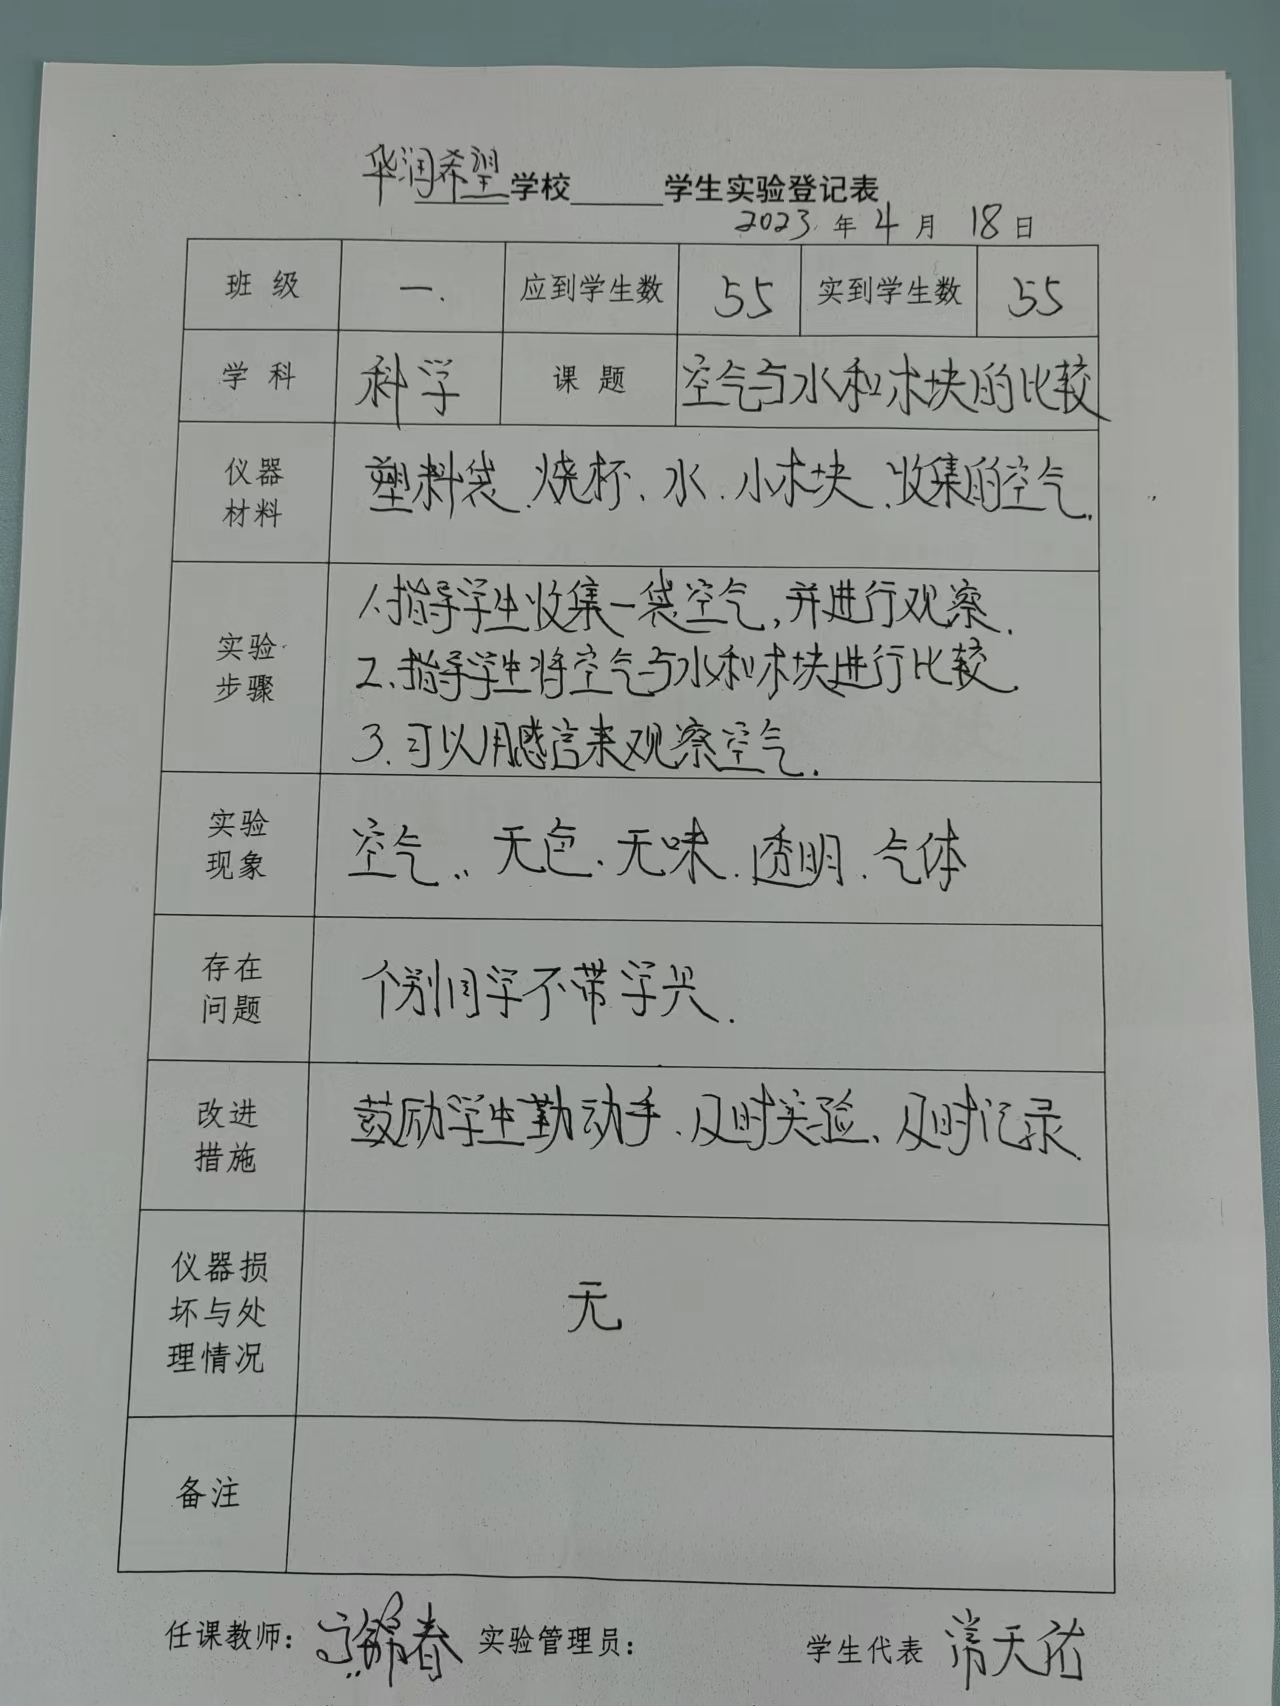 华润希望学校______学生实验登记表
2023 年 4 月 18 日
班级 一. 应到学生数 55 实到学生数 55
学科 科学 课题 空气与水和木块的比较
仪器
材料
塑料袋、烧杯、水、小木块、收集的空气.
实验
步骤
1.指导学生收集一袋空气,并进行观察.
2.指导学生将空气与水和木块进行比较.
3.可以用感言来观察空气.
实验
现象
空气.. 无色、无味、透明、气体
存在
问题
个别同学不带学具.
改进
措施
鼓励学生勤动手、及时实验、及时记录.
仪器损
坏与处
理情况
无
备注
任课教师: 春 实验管理员: 学生代表 常天佑